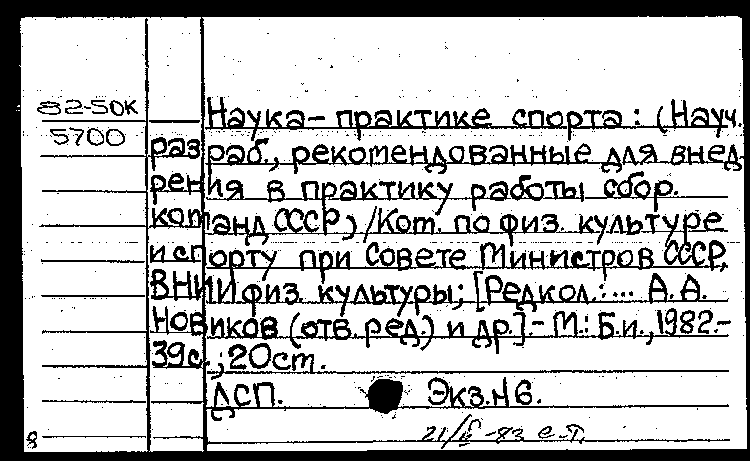 82-50К
5700
Наука - практике спорта: (Науч.
разраб., рекомендованные для внед
рения в практику работы сбор.
команд СССР) /Ком. по физ. культуре
и спорту при Совете Министров СССР,
ВНИИ физ. культуры; [Редкол.:... А. А.
Новиков (отв. ред.) и др.] - М.: Б.и., 1982.-
39с.; 20см.
ДСП. Экз.N6.
8